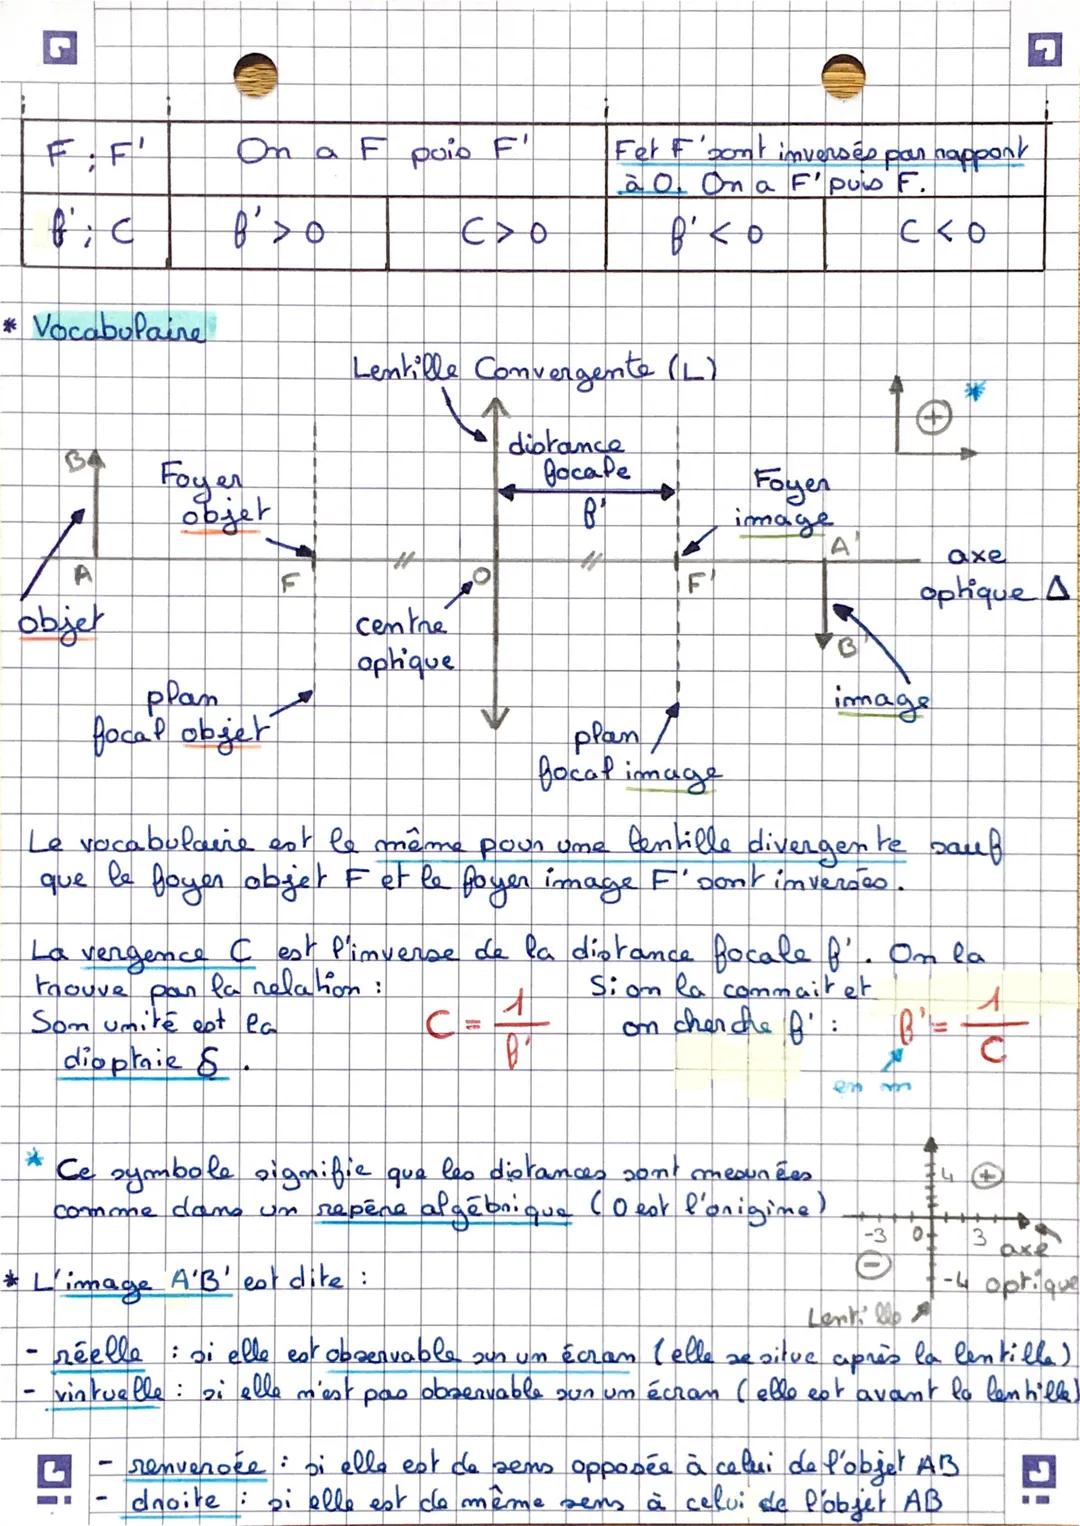 F ; F' On a F puis F' F et F' sont inversés par rapport
à O. On a F' puis F.
f' ; C f' > 0 C > 0 f' < 0 C < 0
* Vocabulaire
Lentille Convergente (L)
*
+
distance
focale
f'
B
Foyer
objet
Foyer
image
A F O F' A'
axe
optique Δ
objet
centre
optique
B'
image
plan
focal objet
plan
focal image
Le vocabulaire est le même pour une lentille divergente sauf
que le foyer objet F et le foyer image F' sont inversés.
La vergence C est l'inverse de la distance focale f'. On la
trouve par la relation : Si on la connait et
Son unité est la C = 1/f' on cherche f' : f' = 1/C
dioptrie δ.
en m
* Ce symbole signifie que les distances sont mesurées
comme dans un repère algébrique (O est l'origine)
4 +
-3 0 3 axe
- -4 optique
Lentille
* L'image A'B' est dite :
- réelle : si elle est observable sur un écran (elle se situe après la lentille)
- virtuelle : si elle n'est pas observable sur un écran (elle est avant la lentille)
- renversée : si elle est de sens opposée à celui de l'objet AB
- droite : si elle est de même sens à celui de l'objet AB